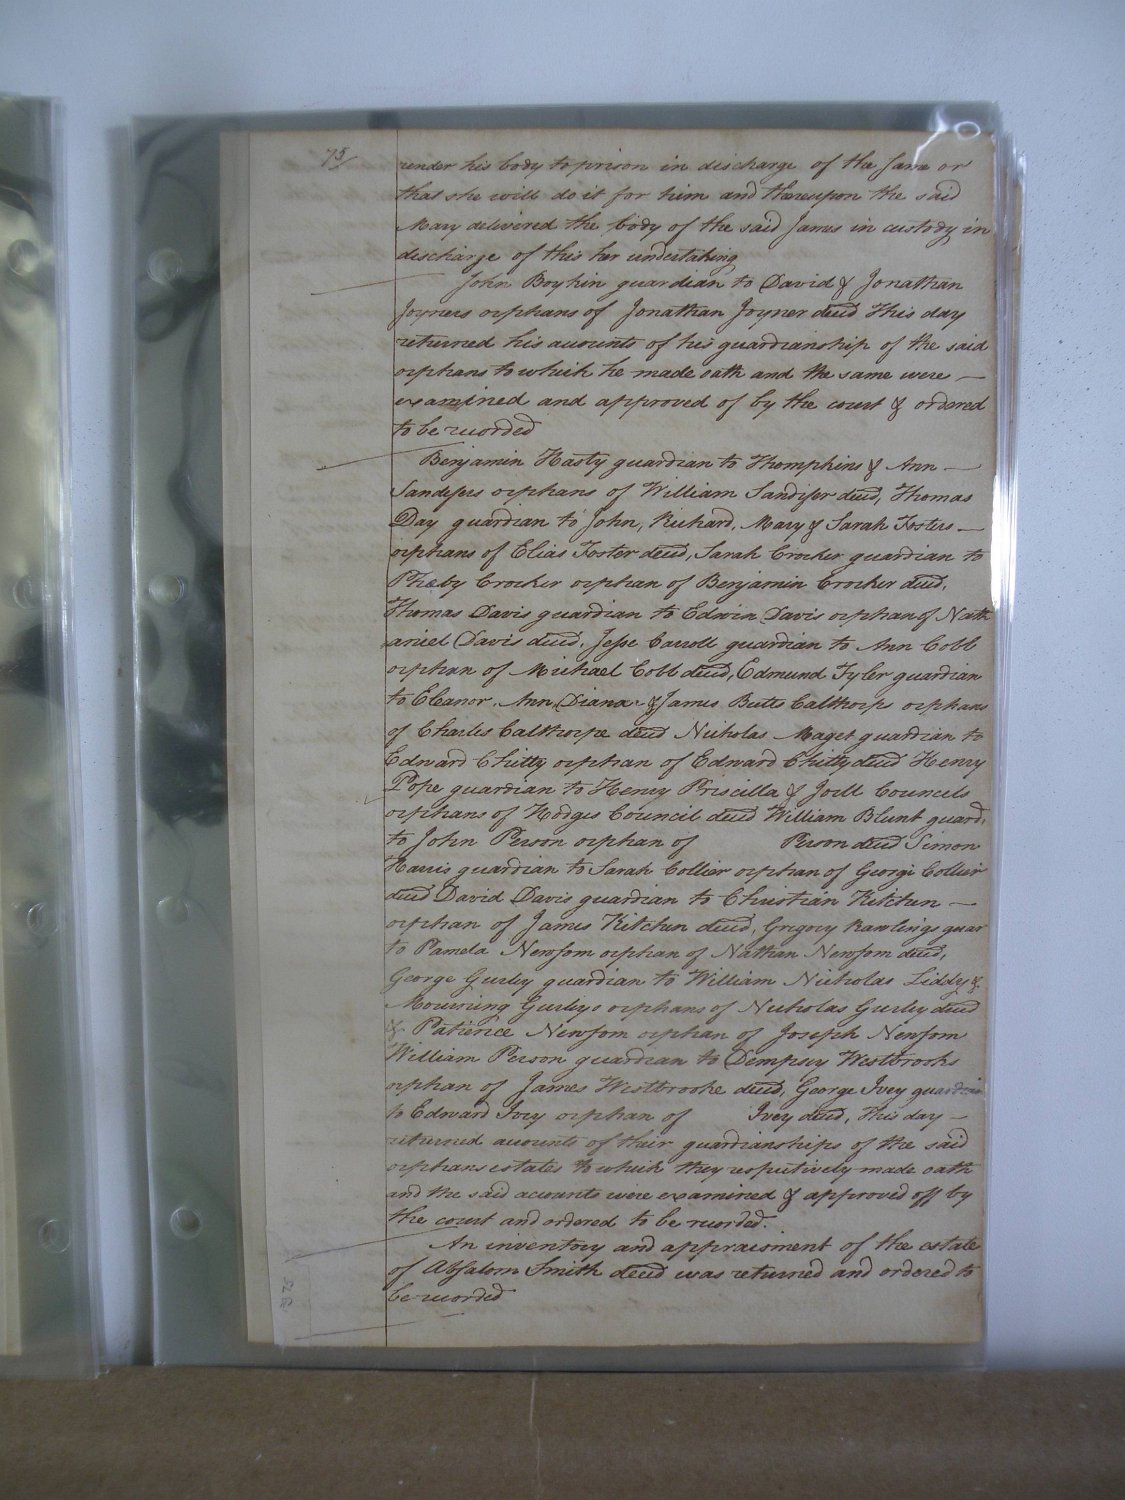 75/
render his body to prison in discharge of the same or
that she will do it for him and thereupon the said
Mary delivered the body of the said James in custody in
discharge of this her undertaking
John Boykin guardian to David & Jonathan
Joyners orphans of Jonathan Joyner decd This day
returned his accounts of his guardianship of the said
orphans to which he made oath and the same were —
examined and approved of by the court & ordered
to be recorded
Benjamin Hasty guardian to Thompkins & Ann —
Sandefers orphans of William Sandifer decd, Thomas
Day guardian to John, Richard, Mary & Sarah Fosters —
orphans of Elias Foster decd, Sarah Crocker guardian to
Pheby Crocker orphan of Benjamin Crocker decd,
Thomas Davis guardian to Edwin Davis orphan of Nath
aniel Davis decd, Jesse Carroll guardian to Ann Cobb
orphan of Michael Cobb decd, Edmund Tyler guardian
to Eleanor, Ann, Diana & James Butts Calthorps orphans
of Charles Calthorpe decd Nicholas Maget guardian to
Edward Chitty orphan of Edward Chitty decd Henry
Pope guardian to Henry Priscilla & Joell Councels
orphans of Hodges Council decd William Blunt guard.
to John Person orphan of Person decd Simon
Harris guardian to Sarah Collier orphan of George Collier
decd David Davis guardian to Christian Kitchen —
orphan of James Kitchen decd, Gregory Rawlings guar
to Pamela Newsom orphan of Nathan Newsom decd,
George Gurley guardian to William Nicholas Liddy &
Mourning Gurleys orphans of Nicholas Gurley decd
& Patience Newsom orphan of Joseph Newsom
William Person guardian to Dempsey Westbrooks
orphan of James Westbrooke decd, George Ivey guardian
to Edward Ivey orphan of Ivey decd, This day —
returned accounts of their guardianships of the said
orphans estates to which they respectively made oath
and the said accounts were examined & approved off by
the court and ordered to be recorded.
An inventory and appraisment of the estate
of Absalom Smith decd was returned and ordered to
be recorded